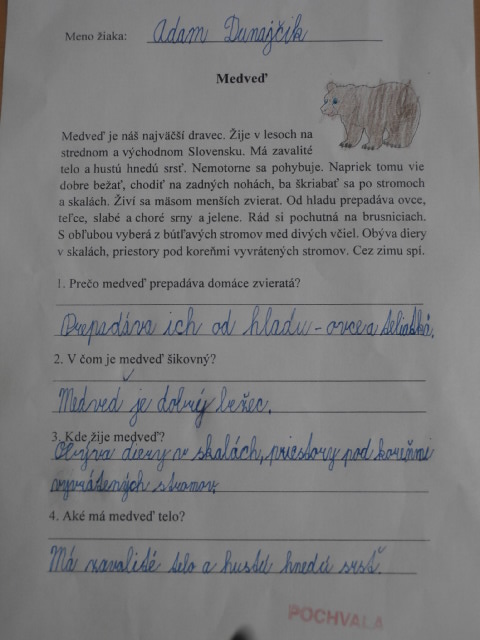 Meno žiaka: Adam Dunajčik
Medveď
Medveď je náš najväčší dravec. Žije v lesoch na
strednom a východnom Slovensku. Má zavalité
telo a hustú hnedú srsť. Nemotorne sa pohybuje. Napriek tomu vie
dobre bežať, chodiť na zadných nohách, ba škriabať sa po stromoch
a skalách. Živí sa mäsom menších zvierat. Od hladu prepadáva ovce,
teľce, slabé a choré srny a jelene. Rád si pochutná na brusniciach.
S obľubou vyberá z bútľavých stromov med divých včiel. Obýva diery
v skalách, priestory pod koreňmi vyvrátených stromov. Cez zimu spí.
1. Prečo medveď prepadáva domáce zvieratá?
Prepadáva ich od hladu - ovce a teliatká.
2. V čom je medveď šikovný?
Medveď je dobrý bežec.
3. Kde žije medveď?
Obýva diery v skalách, priestory pod koreňmi
vyvrátených stromov.
4. Aké má medveď telo?
Má zavalité telo a hustú hnedú srsť.
POCHVALA